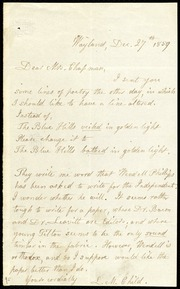 Wayland, Dec. 27th 1859
Dear Mr. Chapman,
I sent you
some lines of poetry the other day, in which
I should like to have a line altered.
Instead of,
The Blue Hills veiled in golden light
Please change it to
The Blue Hills bathed in golden light.
They write me word that Wendell Phillips
has been asked to write for the Independent;
I wonder whether he will. It seems
to write for a paper, where Dr. Bacon
and Dr. are Editors, and where
young Tilton seems to be the only sound
timber in the fabric. However, Wendell is
orthodox, and so I suppose would like the
paper better than I do.
Yours cordially
L. M. Child.